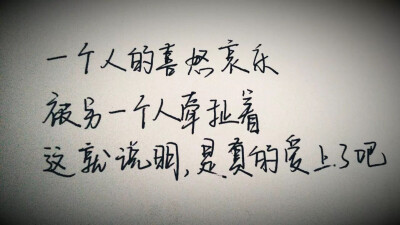 一个人的喜怒哀乐
被另一个人牵扯着
这就说明,是真的爱上了吧